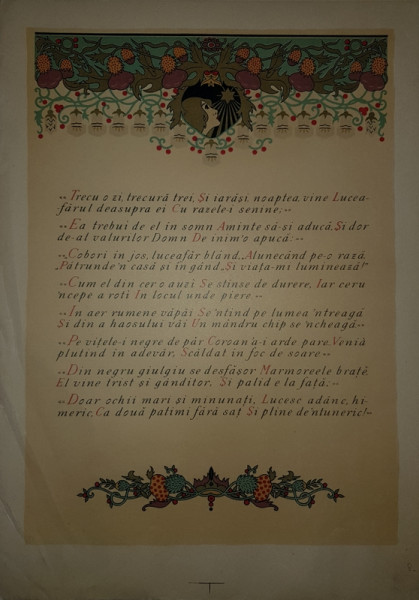 Trecu o zi, trecură trei, Și iarăși, noaptea, vine Lucea-
fărul deasupra ei Cu razele-i senine;
Ea trebui de el în somn Aminte să-și aducă, Și dor
de-al valurilor Domn De inim'o apucă:
„Cobori în jos, luceafăr blând, Alunecând pe-o rază,
Pătrunde'n casă și în gând, Și viața-mi luminează!"
Cum el din cer o auzi Se stinse de durere, Iar ceru
'ncepe a roti În locul unde piere.
În aer rumene văpăi Se'ntind pe lumea 'ntreagă
Și din a haosului văi Un mândru chip se'ncheagă
Pe vițele-i negre de păr Coroan'a-i arde pare, Venià
plutind în adevăr, Scăldat în foc de soare
Din negru giulgiu se desfășor Marmoreele brațe,
El vine trist și gânditor, Și palid e la față;
Doar ochii mari și minunați, Lucesc adânc, hi-
meric, Ca două patimi fără saț Și pline de'ntuneric!